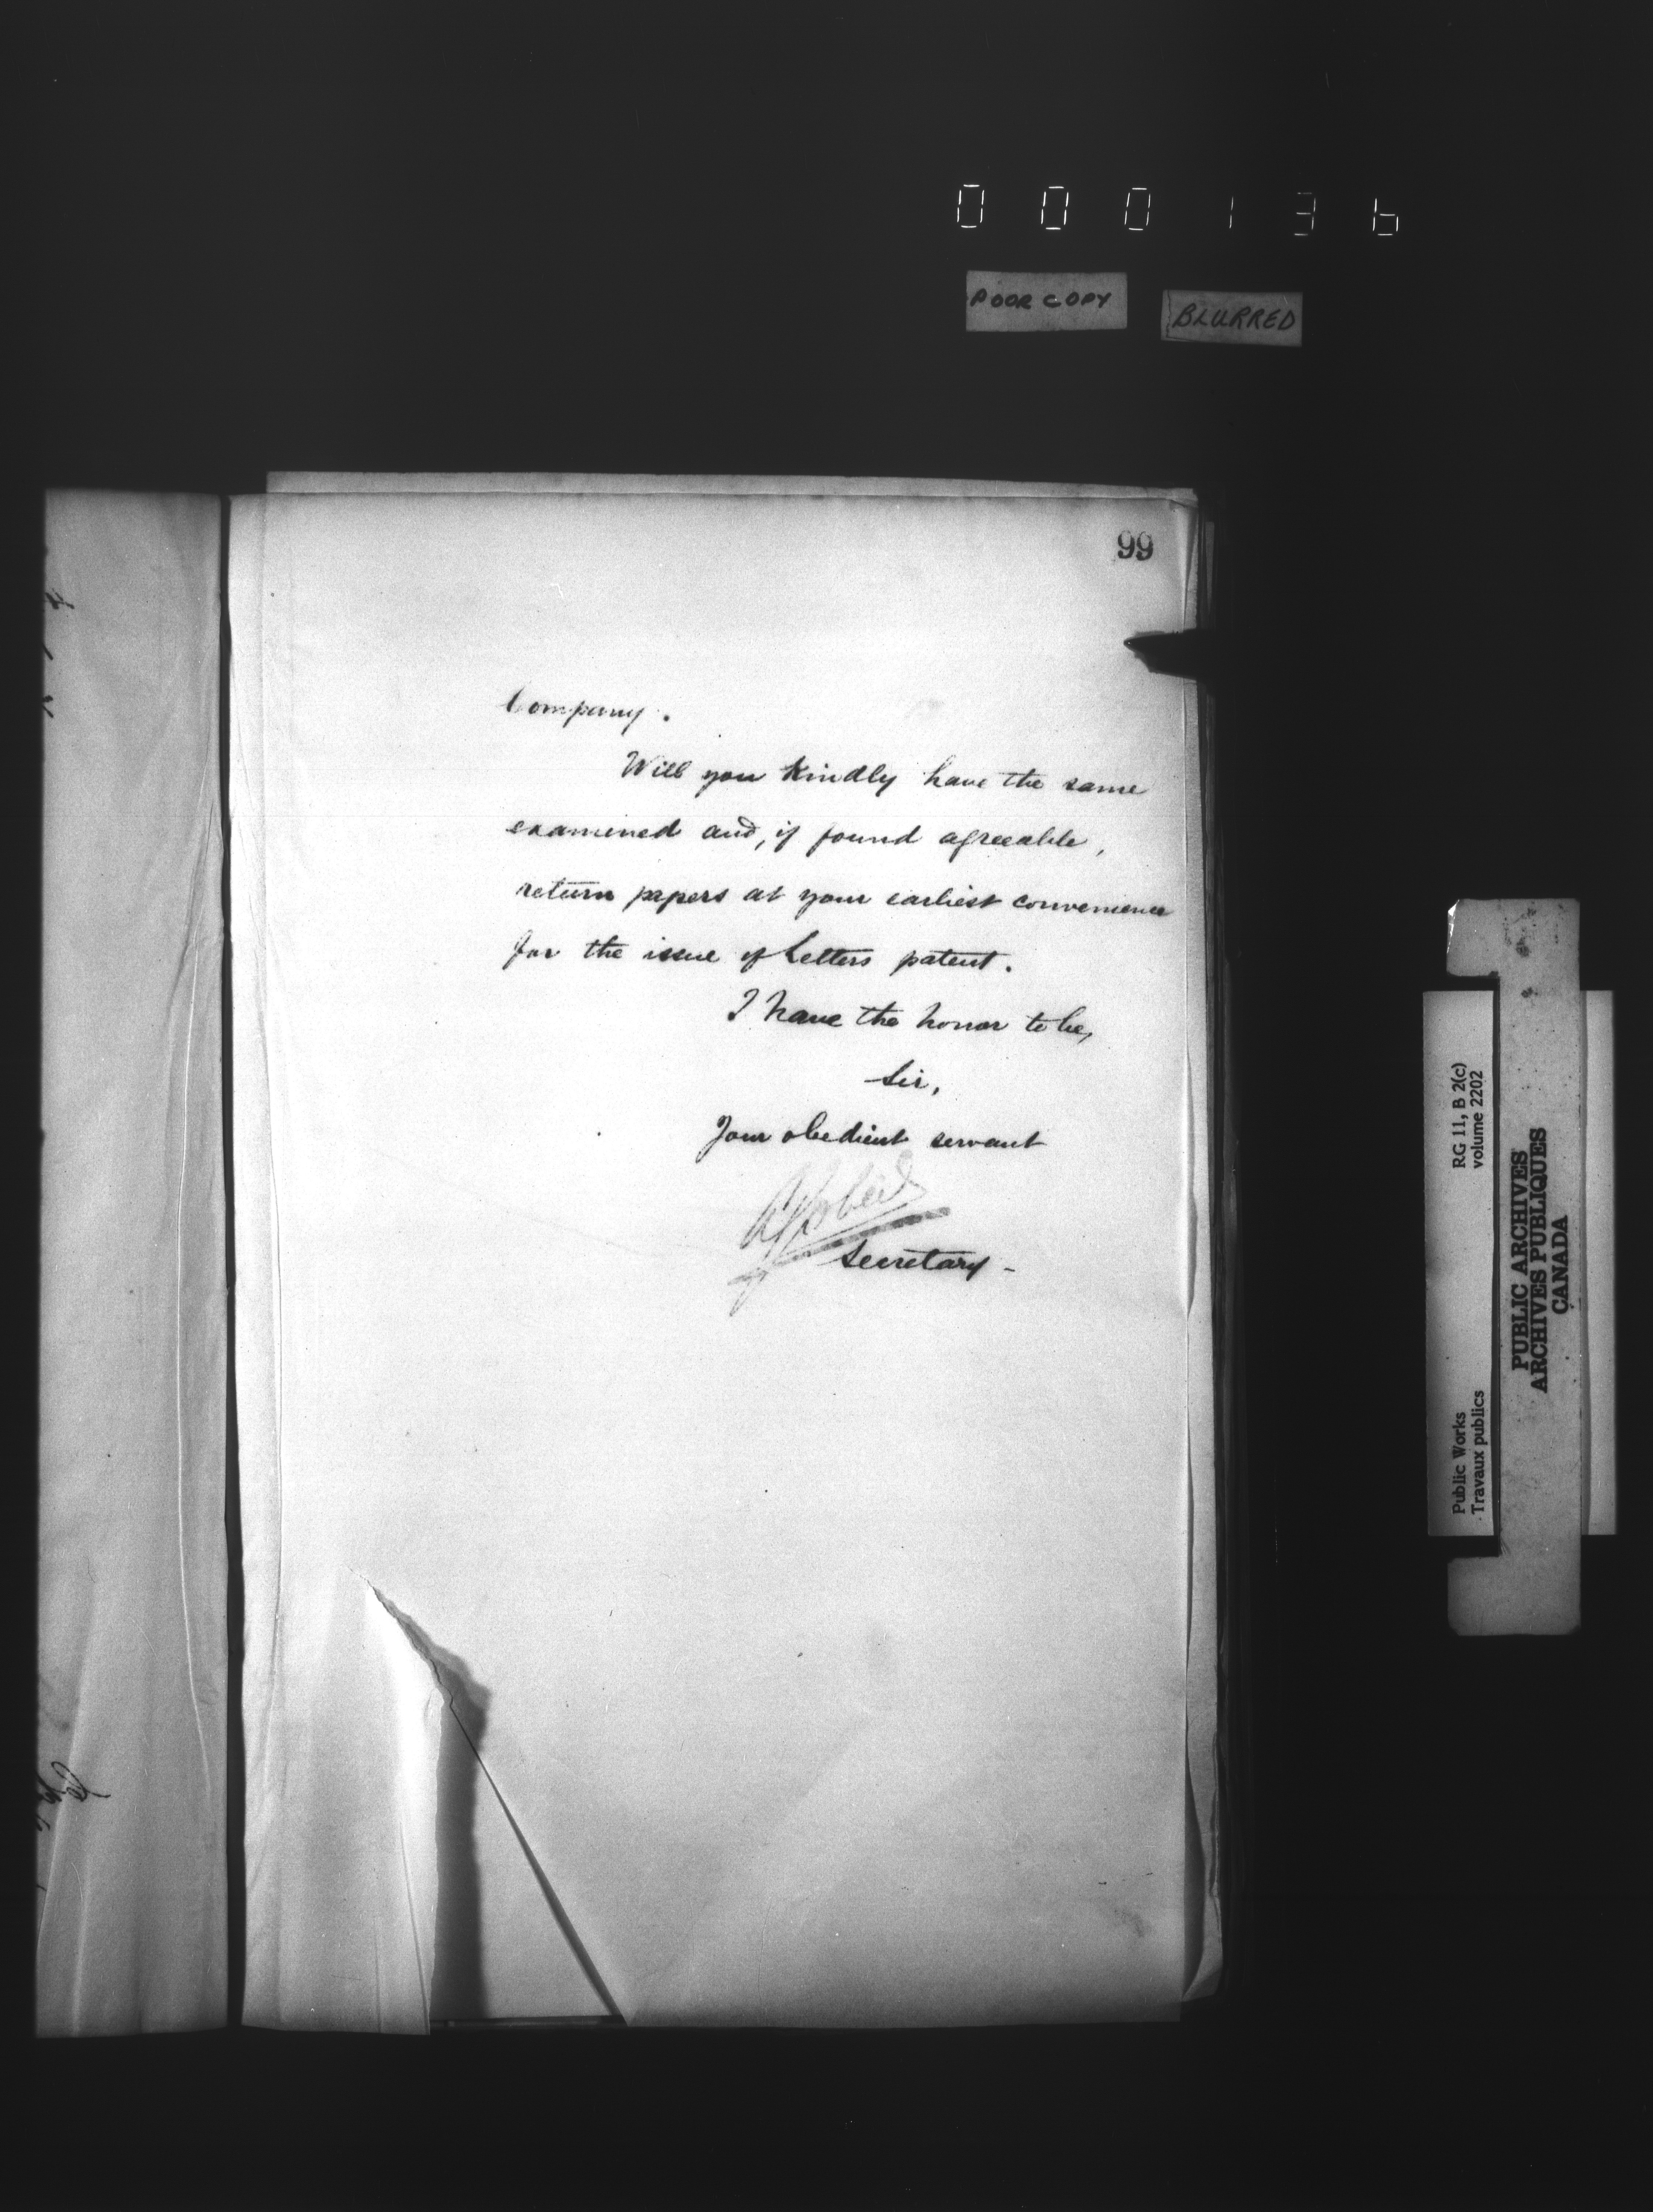 000136
POOR COPY
BLURRED
99
Company.
Will you kindly have the same
examined and, if found agreeable,
return papers at your earliest convenience
for the issue of Letters patent.
I have the honor to be,
Sir,
Your obedient servant
Secretary -
RG 11, B 2(c)
volume 2202
Public Works
Travaux publics
PUBLIC ARCHIVES
ARCHIVES PUBLIQUES
CANADA